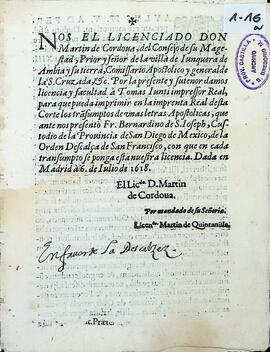 1-16
NOS EL LICENCIADO DON
Martin de Cordoua, del Consejo de su Mages
tad, y Prior y señor de la villa de Iunquera de
Ambia y su tierra, Comissario Apostolico y general de
la S. Cruzada, &c. Por la presente y su tenor damos li
cencia y facultad à Tomas Iunti impressor Real,
para que pueda imprimir en la imprenta Real desta
Corte los trãsumptos de vnas letras Apostolicas, que
ante nos presentò Fr. Bernardino de S. Ioseph, Cus-
todio de la Prouincia de San Diego de Mexico, de la
Orden Descalça de San Francisco, con que en cada
transumpto se ponga esta nuestra licencia. Dada en
Madrid à 6. de Iulio de 1618.
El Licdo D. Martin
de Cordoua.
Por mandado de su Señoria.
Licendo Martin de Quintanilla.
En favor de la Descalzez
PROV. CASTILLA
ARCHIVO